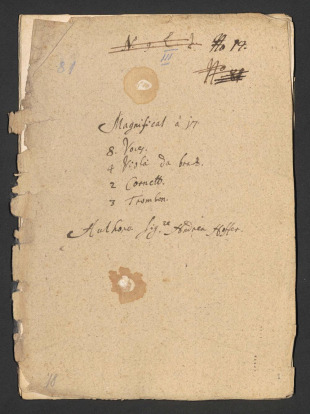 No 17.
III
81
Magnificat à 17.
8. Voces.
4 Viola da brac.
2 Cornett.
3 Trombon.
Authore Sig.re Andrea Hofer.